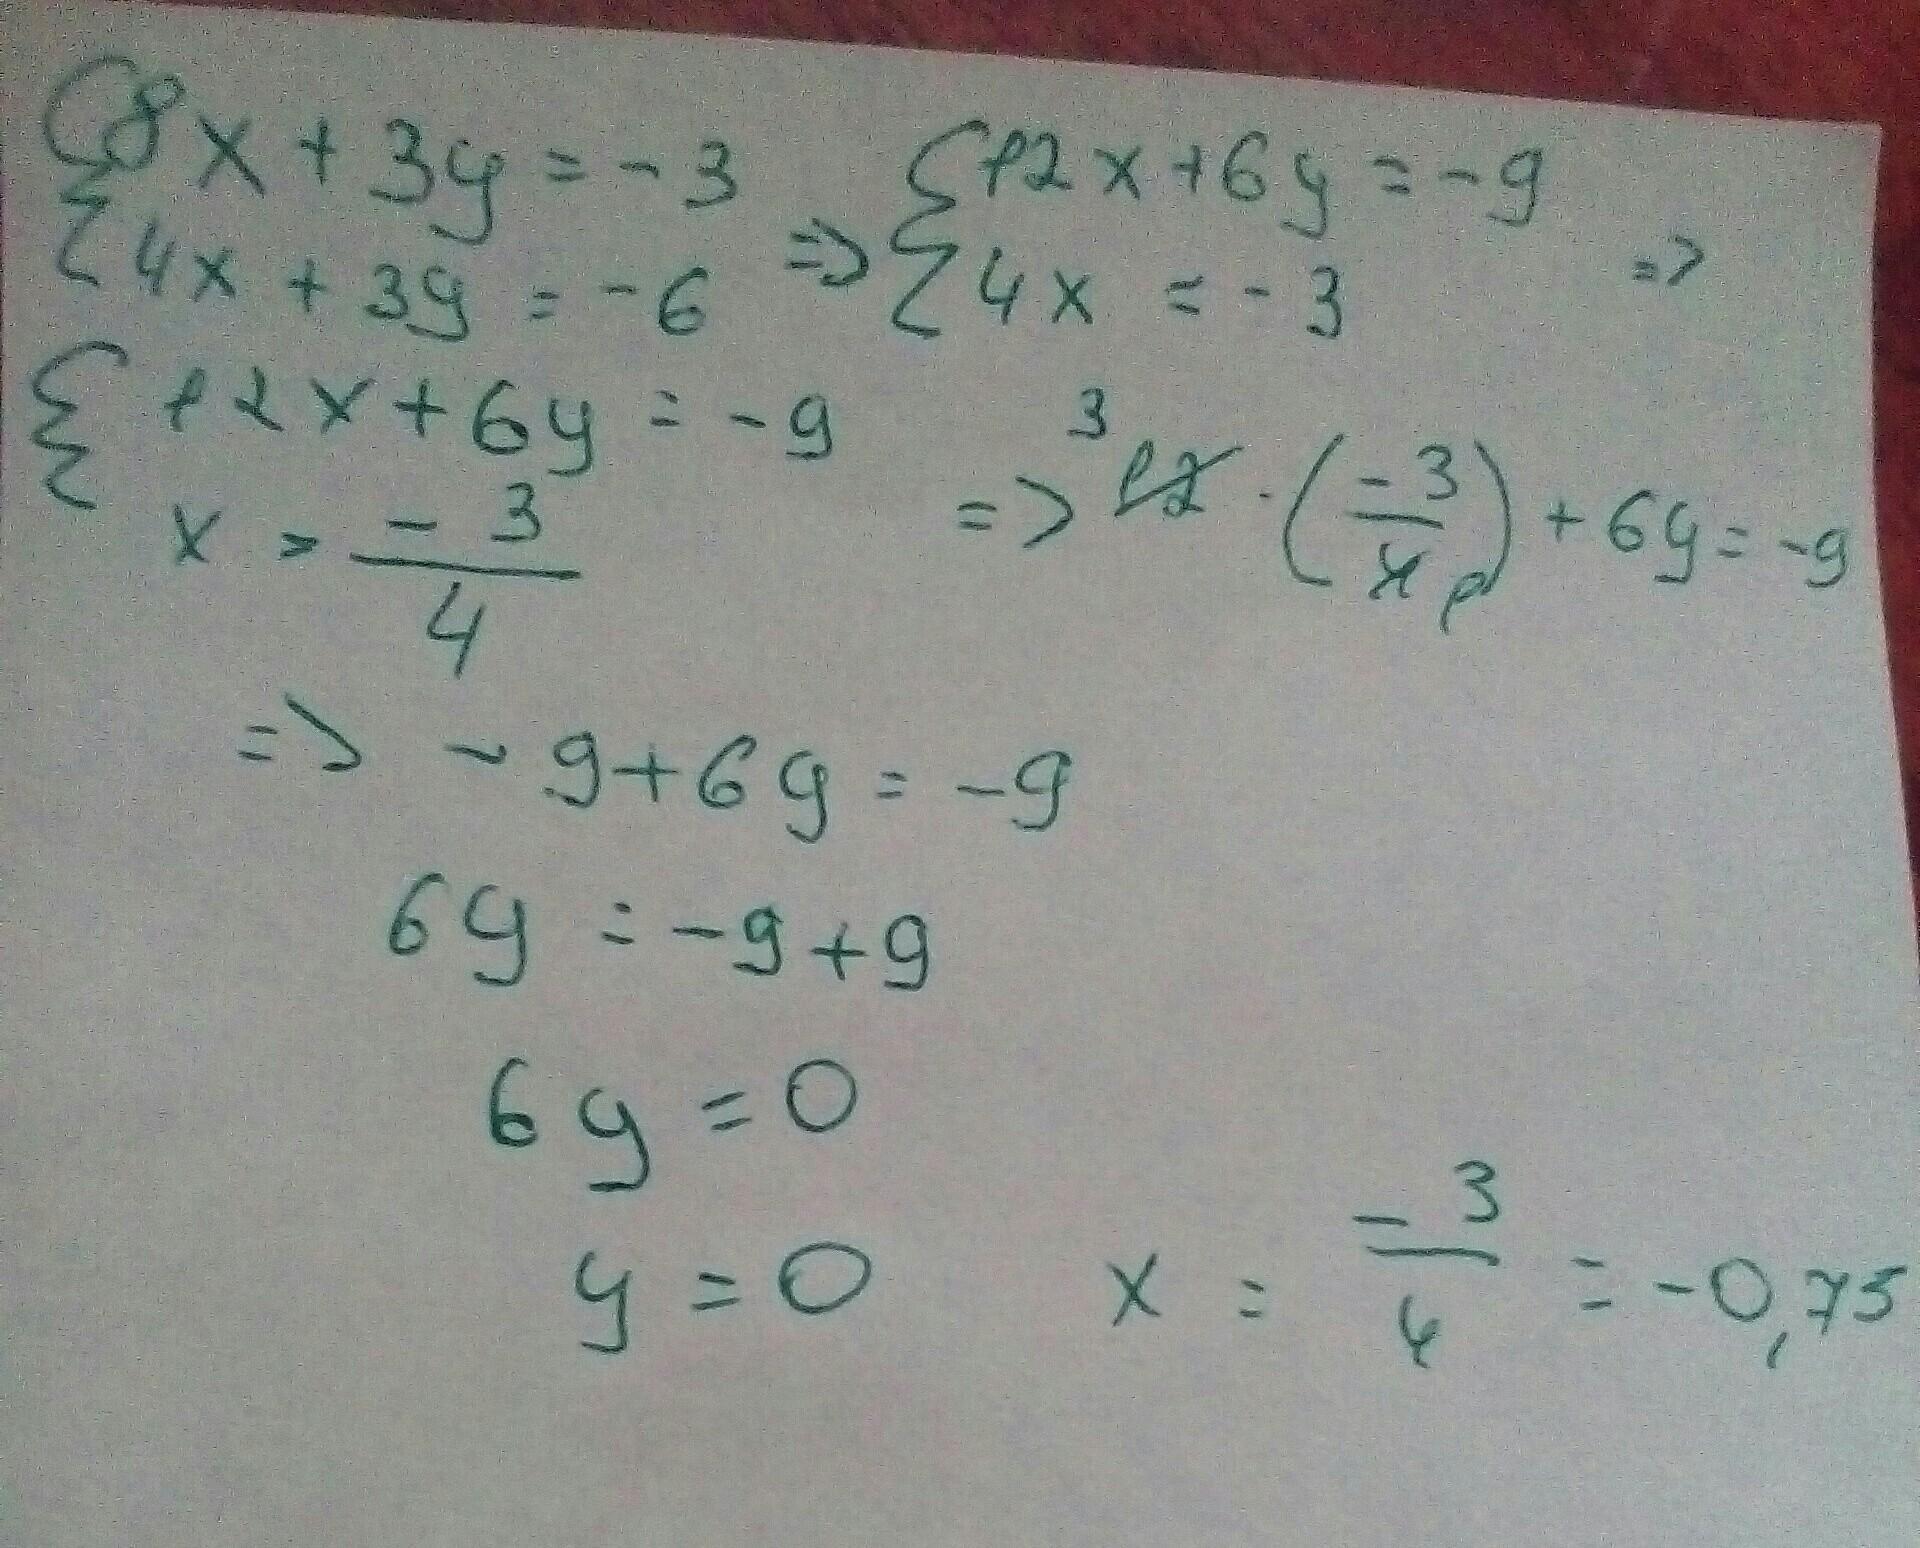 {8x + 3y = -3
{4x + 3y = -6
=> {12x + 6y = -9
{4x = -3
=>
{12x + 6y = -9
x = -3/4
=> 12 · (-3/4) + 6y = -9
3
1
=> -9 + 6y = -9
6y = -9 + 9
6y = 0
y = 0 x = -3/4 = -0,75